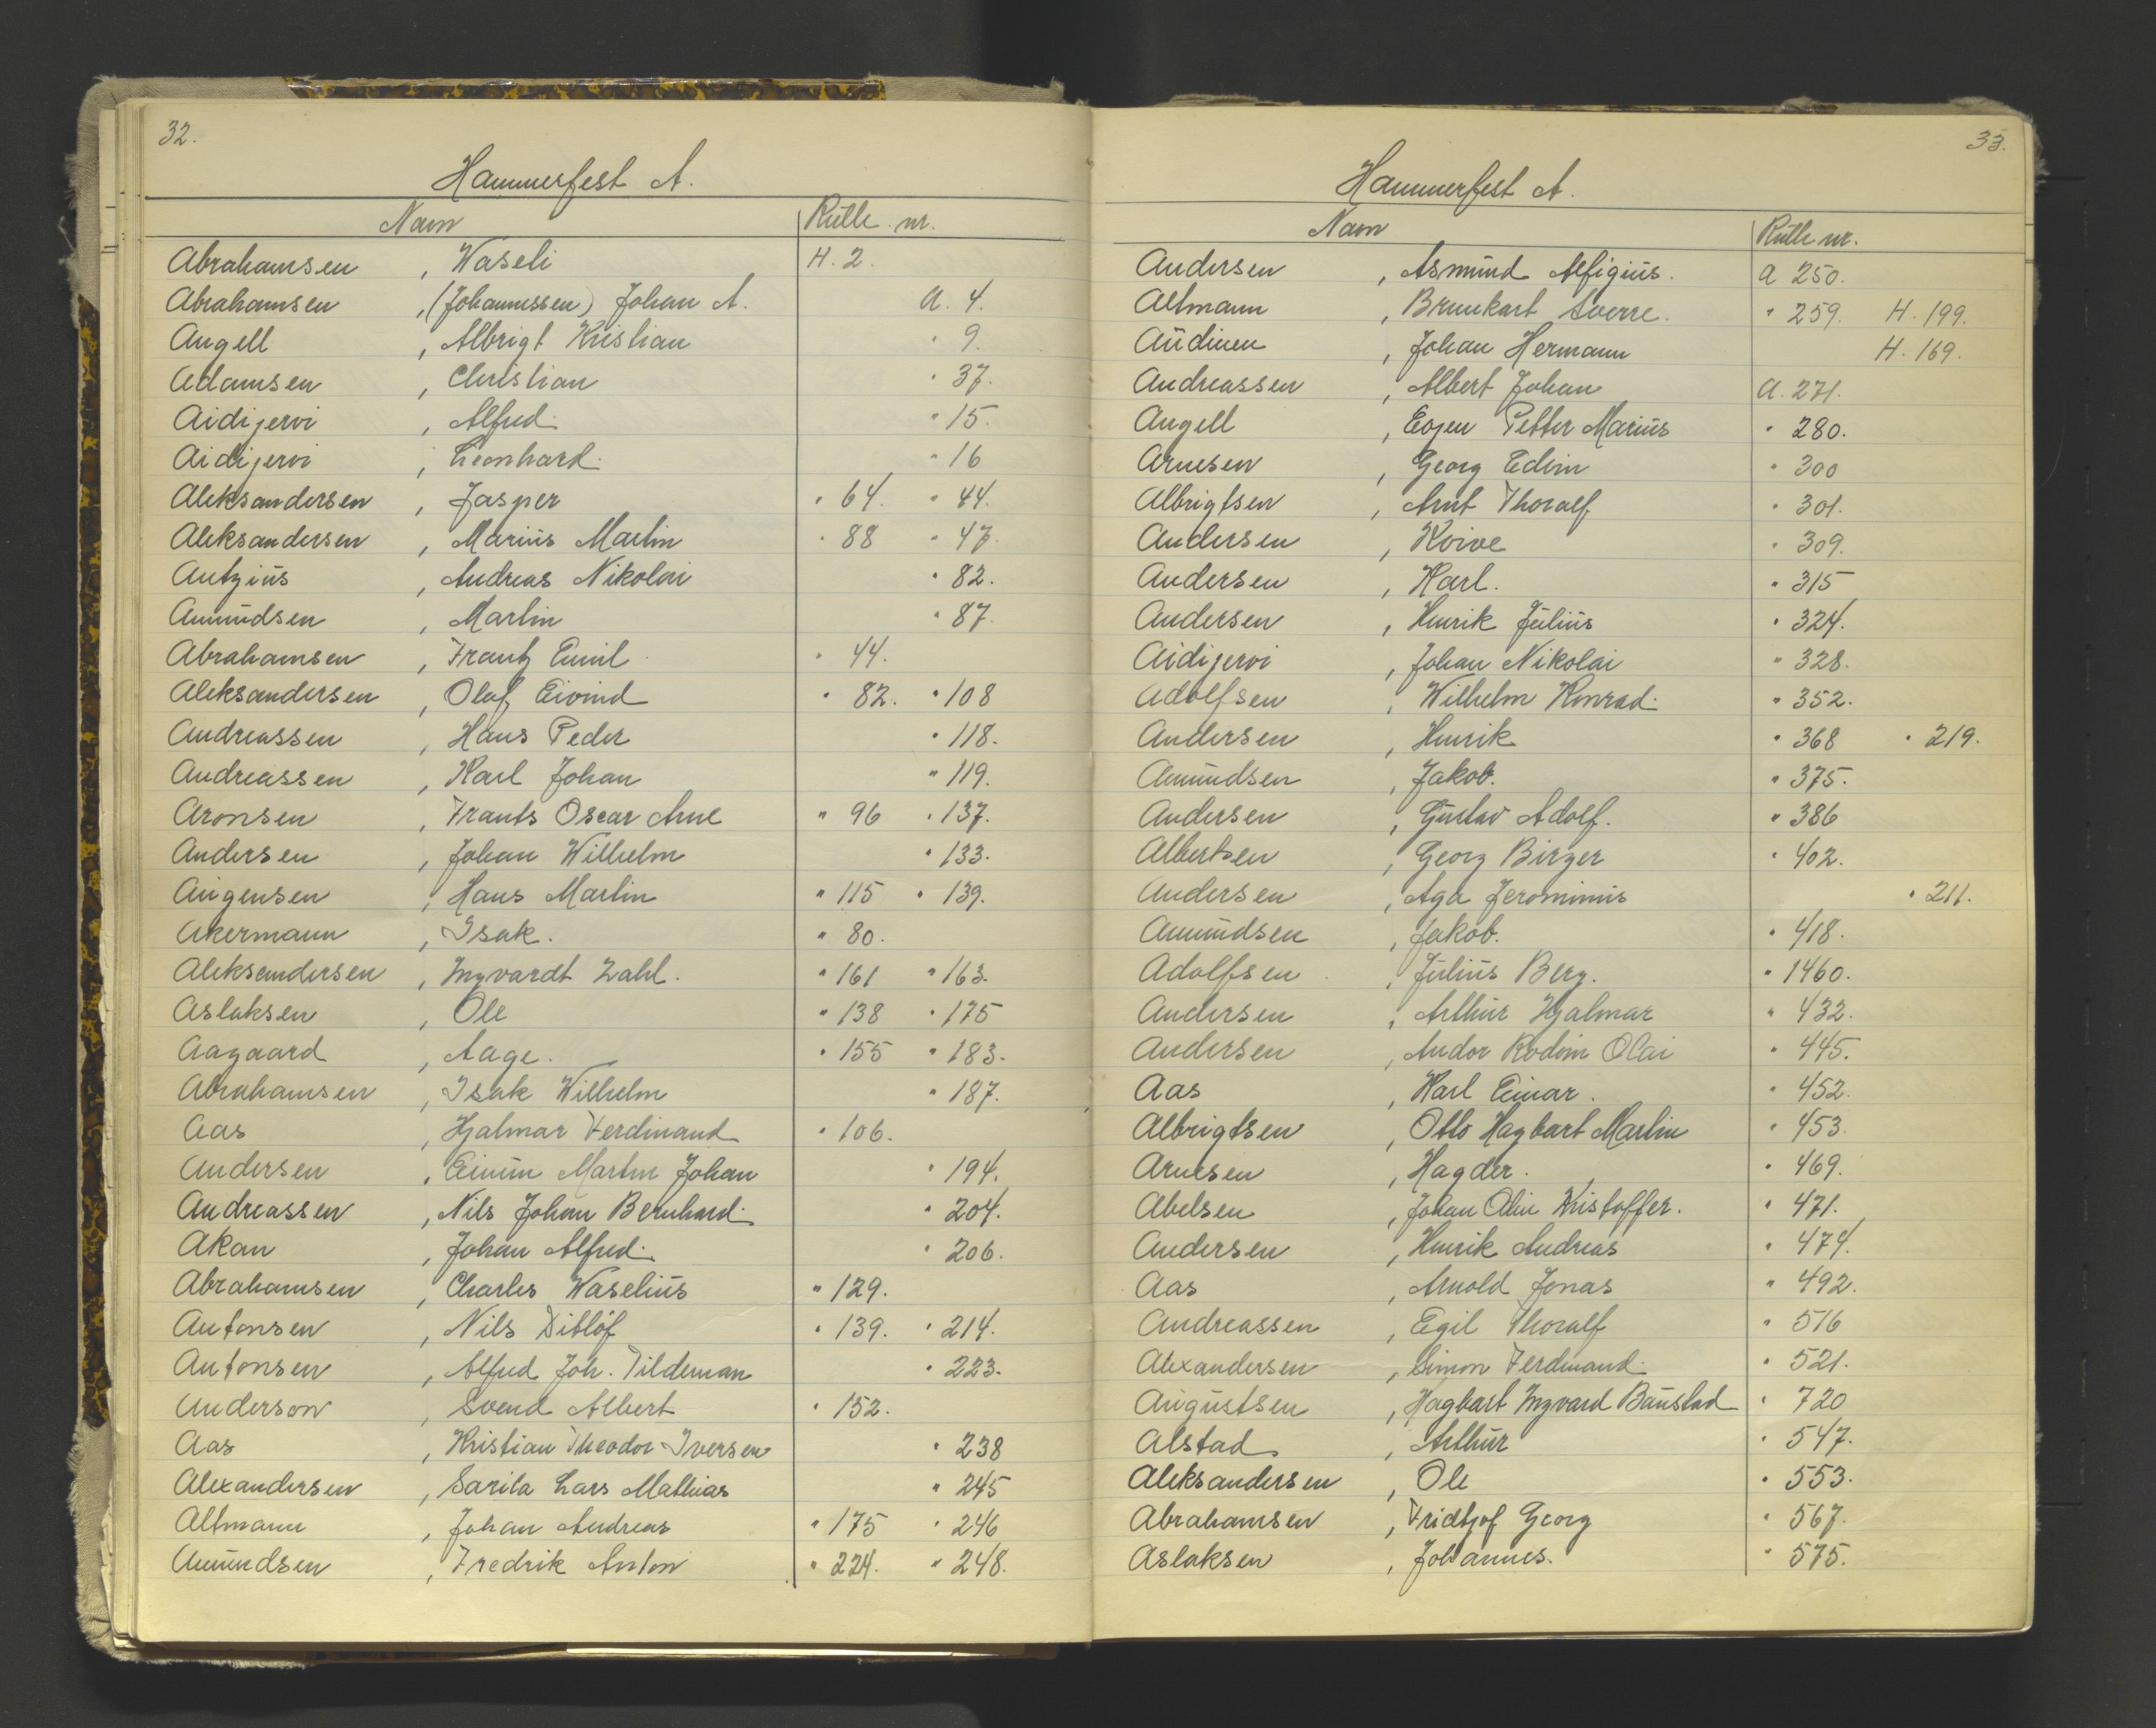 32.
Hammerfest A.
Navn Rulle nr.
Abrahamsen , Waseli H. 2.
Abrahamsen , (Johannessen) Johan A. A. 4.
Angell , Albrigt Kristian " 9.
Adamsen , Christian " 37.
Aidijervi , Alfred. " 15.
Aidijervi , Leonhard. " 16
Aleksandersen , Jasper " 64. " 44.
Aleksandersen , Marius Martin " 88 " 47.
Antzius , Andreas Nikolai " 82.
Amundsen , Martin " 87.
Abrahamsen , Frantz Emil " 44.
Aleksandersen , Olaf Eivind " 82. " 108
Andreassen , Hans Peder " 118.
Andreassen , Karl Johan " 119.
Aronsen , Frants Oscar Arne " 96 " 137.
Andersen , Johan Wilhelm " 133.
Aügensen , Hans Martin " 115 " 139.
Akermann , Isak. " 80.
Aleksandersen , Ingvardt Zahl. " 161 " 163.
Aslaksen , Ole " 138 " 175
Aagaard , Aage. " 155 " 183.
Abrahamsen , Isak Wilhelm " 187.
Aas , Hjalmar Ferdinand " 106.
Andersen , Martin Johan " 194.
Andreassen , Nils Johan Bernhard. " 204.
Akan , Johan Alfred. " 206.
Abrahamsen , Charles Waselius " 129.
Antonsen , Nils Ditlöf " 139. " 214.
Antonsen , Alfred Joh. Tildeman " 223.
Anderson , Svend Albert " 152.
Aas , Kristian Theodor Iversen " 238
Alexandersen , Sarila Lars Mathias " 245
Altmann , Johan Andreas " 175 " 246
Amundsen , Fredrik Anton " 224. " 248.
33.
Hammerfest A.
Navn Rulle nr.
Andersen , Asmund Alfigius. A 250.
Altmann , Brunkart Sverre. " 259. H. 199.
Audinen , Johan Hermann H. 169.
Andreassen , Albert Johan A. 271.
Angell , Eojen Petter Marius " 280.
Arnesen , Georg Edvin " 300
Albrigtsen , Arnt Thoralf " 301.
Andersen , Koive " 309.
Andersen , Karl. " 315
Andersen , Henrik Julius " 324.
Aidijervi , Johan Nikolai " 328.
Adolfsen , Wilhelm Konrad. " 352.
Andersen , Henrik " 368 " 219.
Amundsen , Jakob. " 375.
Andersen , Gustav Adolf. " 386
Albertsen , Georg Birger " 402.
Andersen , Aga Jerominus " 211.
Amundsen , Jakob. " 418.
Adolfsen , Julius Berg. " 1460.
Andersen , Arthur Hjalmar " 432.
Andersen , Andor Rodvin Olai " 445.
Aas , Karl Einar. " 452.
Albrigtsen , Otto Hagbart Martin " 453.
Arnesen , Hagder. " 469.
Abelsen , Johan Olin Kristoffer. " 471.
Andersen , Henrik Andreas " 474.
Aas , Arnold Jonas " 492.
Andreassen , Egil Thoralf " 516
Alexandersen , Simon Ferdinand. " 521.
Augustsen , Hagbart Ingvard Baustad " 720
Alstad , Arthur " 547.
Aleksandersen , Ole " 553.
Abrahamsen , Fridtjof Georg " 567.
Aslaksen , Johannes. " 575.